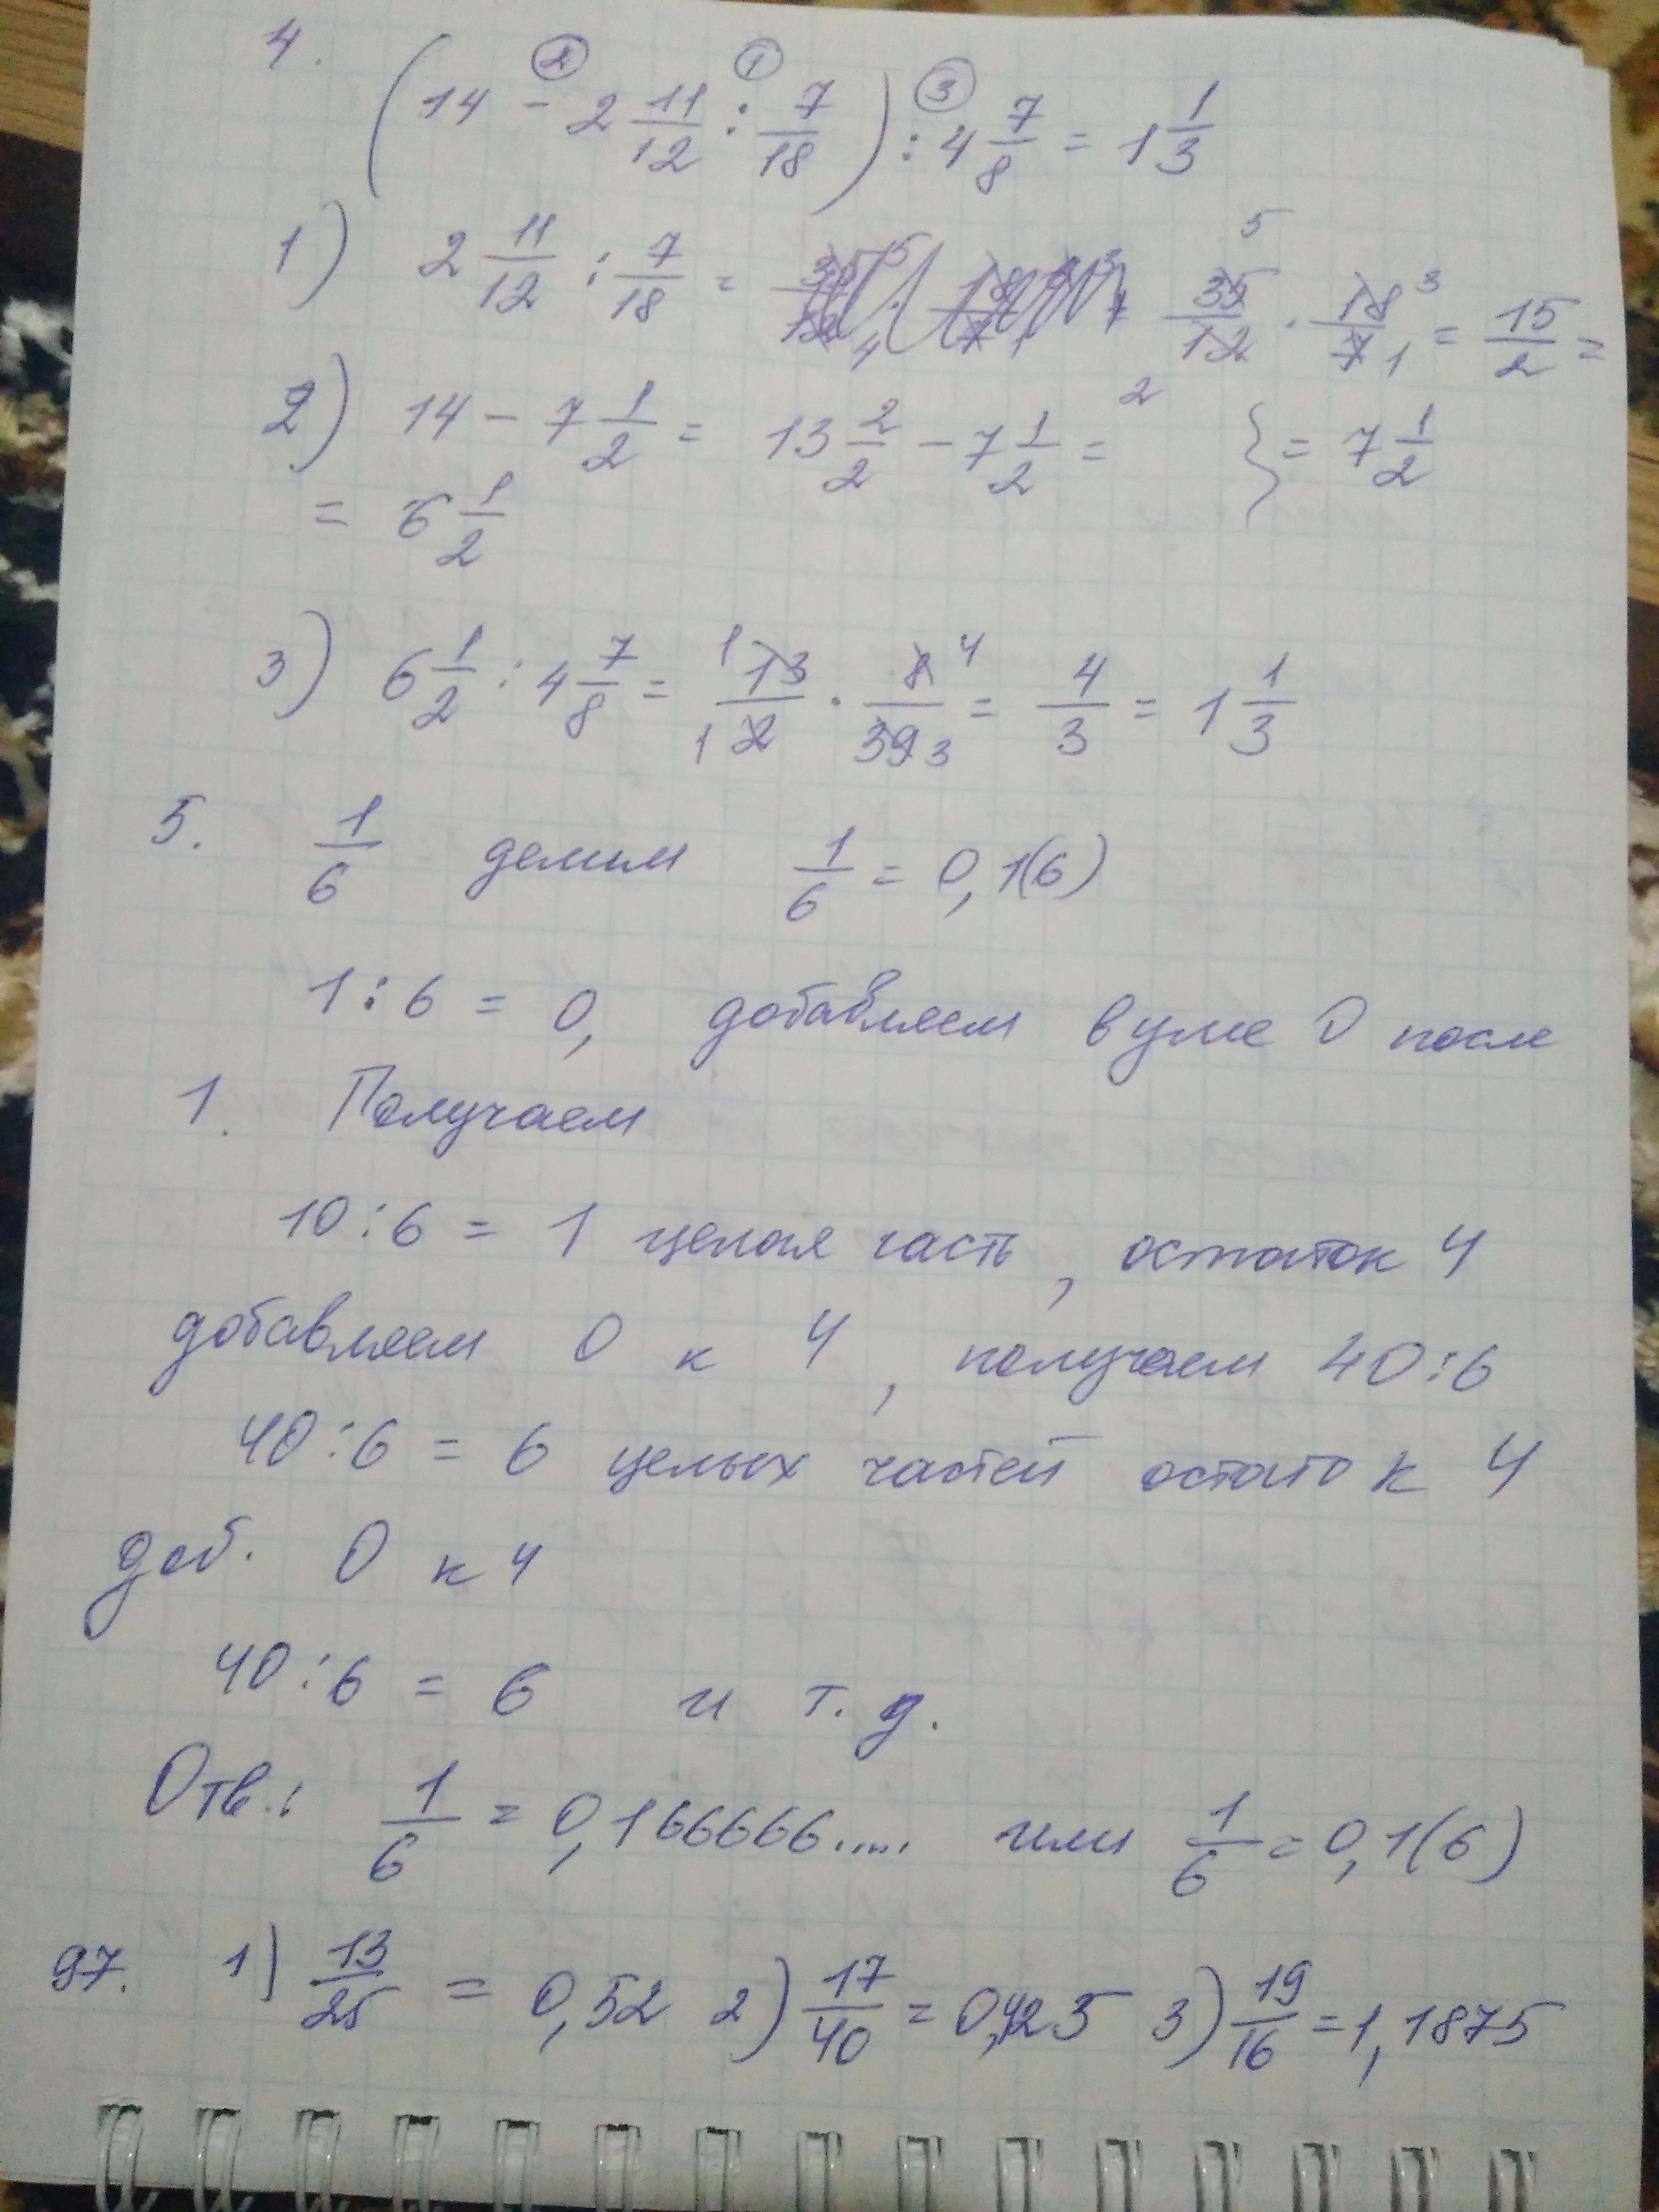 4. (14 - 2 11/12 : 7/18) : 4 7/8 = 1 1/3
② ① ③
1) 2 11/12 : 7/18 = 35/12 · 18/7 = 15/2 =
5 3 2 1
2) 14 - 7 1/2 = 13 2/2 - 7 1/2 = } = 7 1/2
= 6 1/2
3) 6 1/2 : 4 7/8 = 13/2 · 8/39 = 4/3 = 1 1/3
1 4 1 3
5. 1/6 делим 1/6 = 0,1(6)
1 : 6 = 0, добавляем в уме 0 после
1. Получаем
10 : 6 = 1 целая часть, остаток 4
добавляем 0 к 4, получаем 40 : 6
40 : 6 = 6 целых частей остаток 4
доб. 0 к 4
40 : 6 = 6 и т. д.
Отв.: 1/6 = 0,166666..... или 1/6 = 0,1(6)
97. 1) 13/25 = 0,52 2) 17/40 = 0,425 3) 19/16 = 1,1875